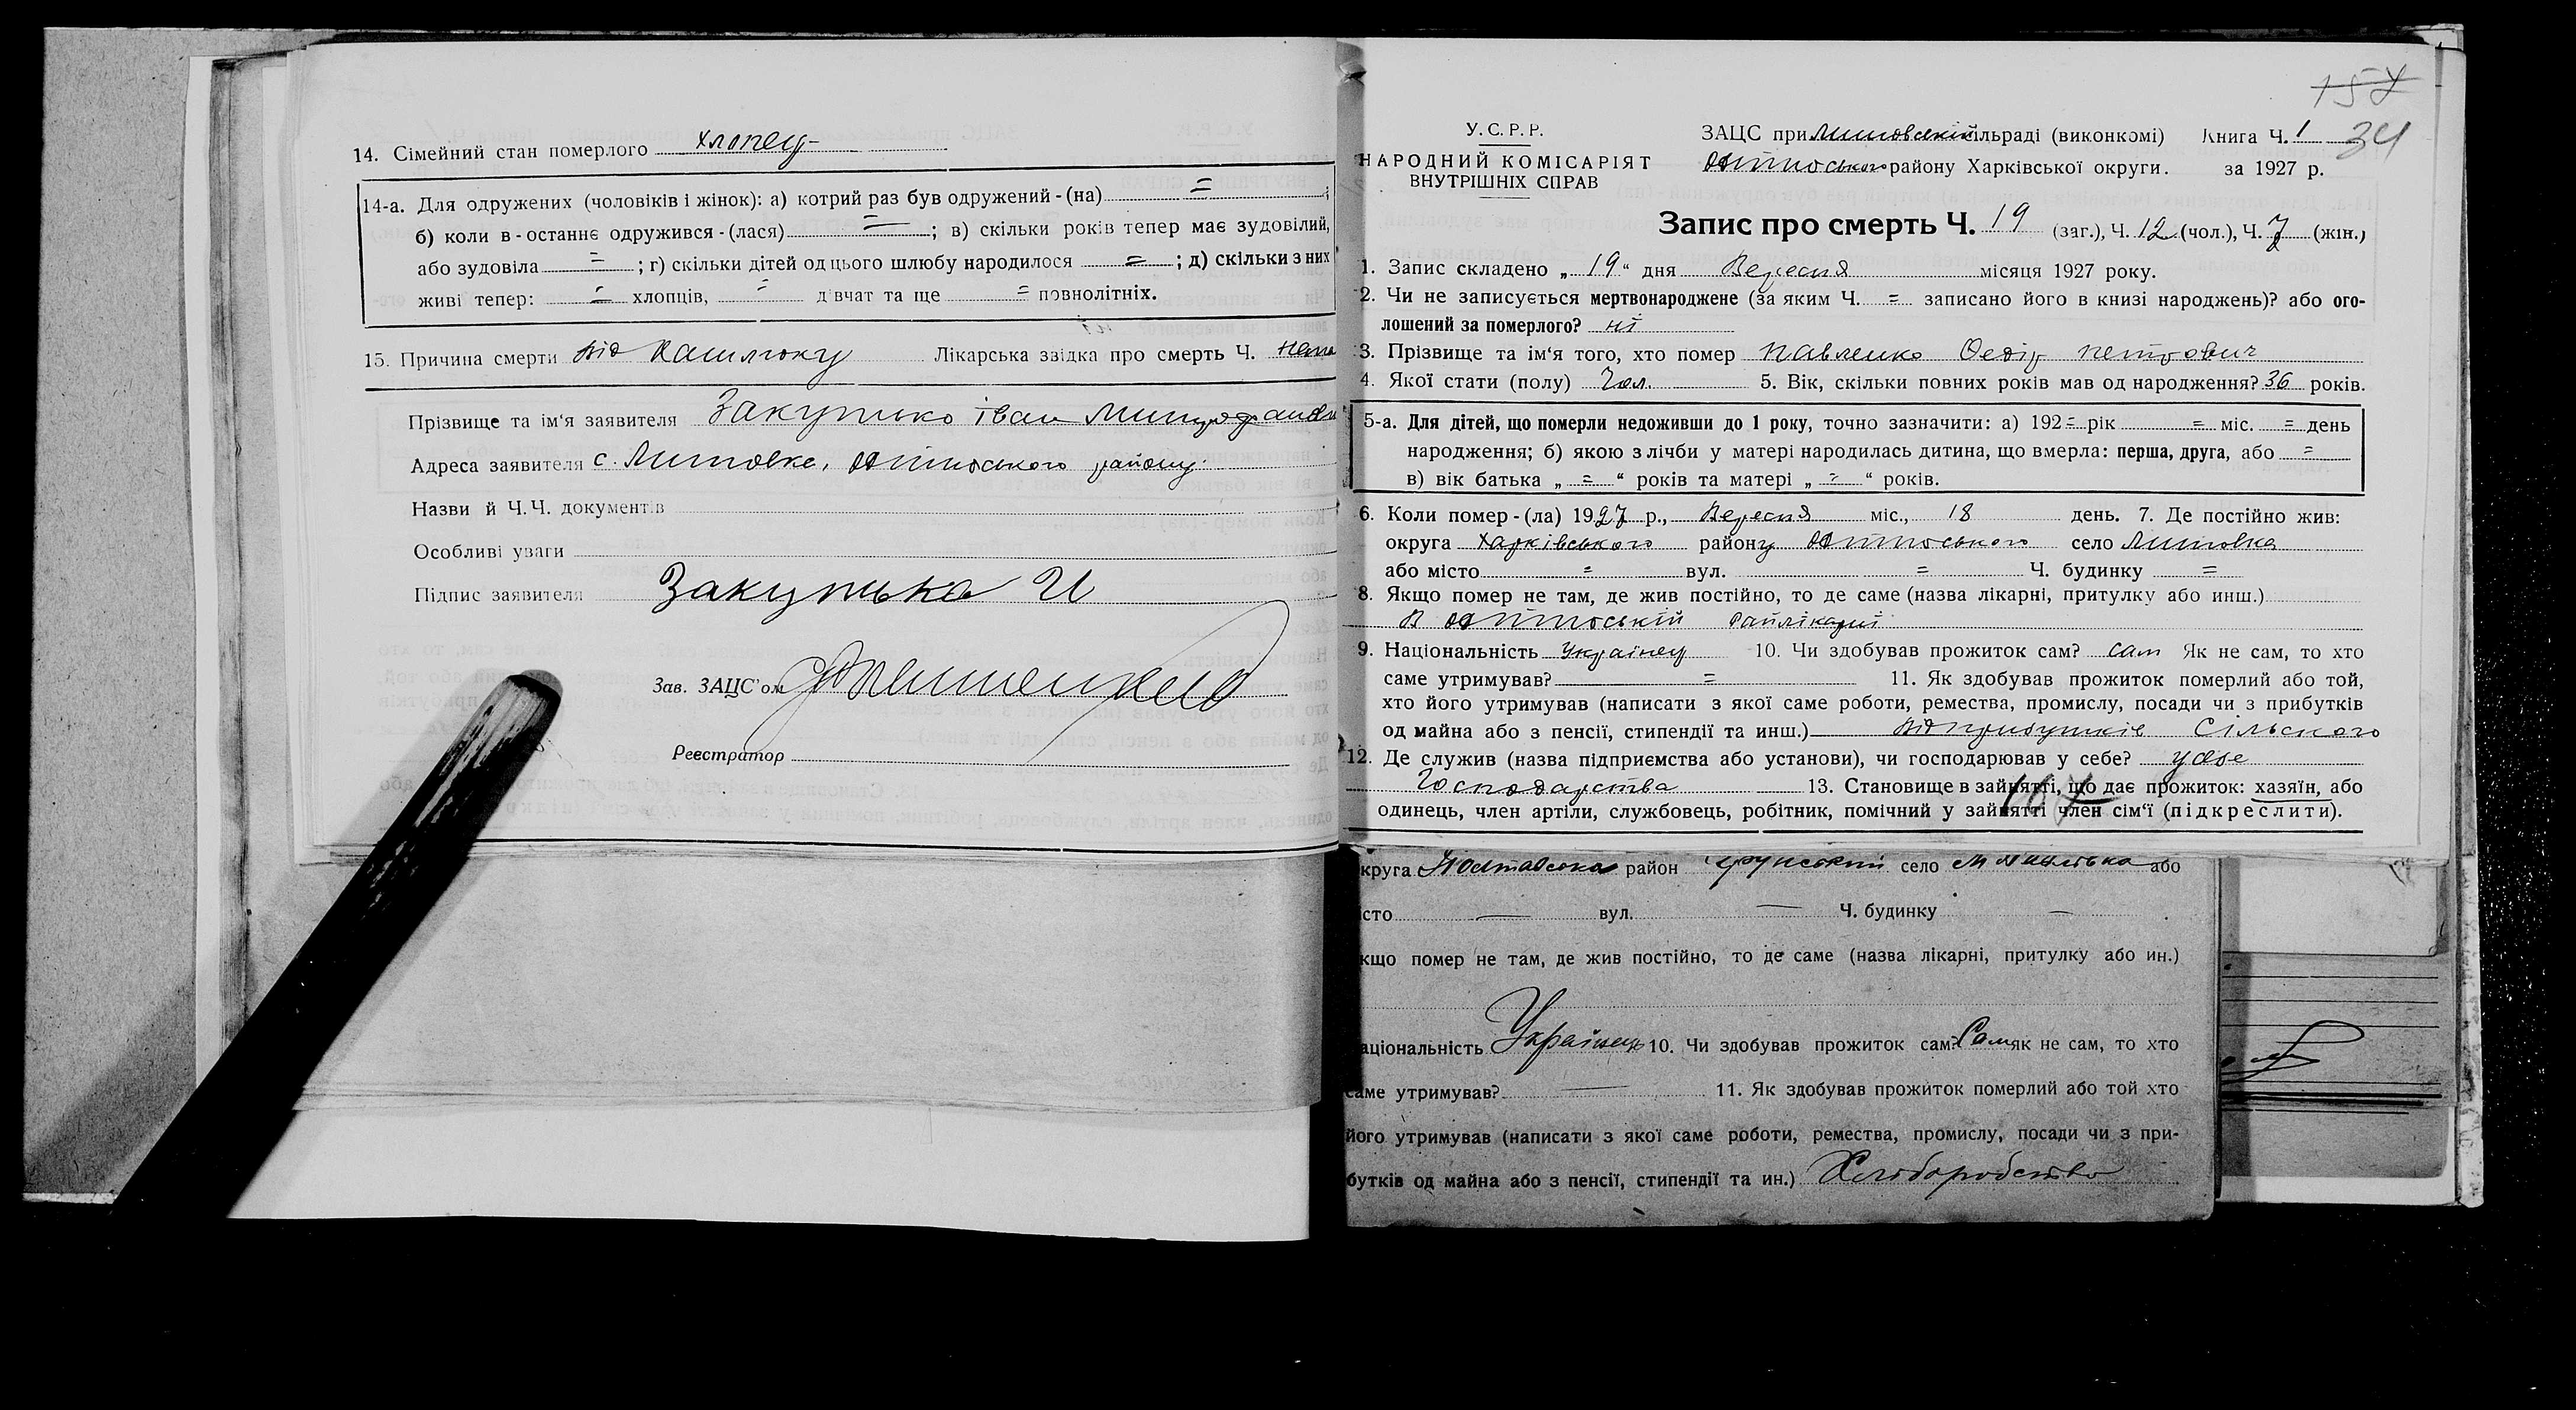 14. Сімейний стан померлого хлопец
14-а. Для одружених (чоловіків і жінок): а) котрий раз був одружений-(на) = ;
б) коли в-останнє одружився-(лася) = ; в) скільки років тепер має зудовілий,
або зудовіла = ; г) скільки дітей од цього шлюбу народилося = ; д) скільки з них
живі тепер: = хлопців, = дівчат та ще = повнолітніх.
15. Причина смерти від кашлюку Лікарська звідка про смерть Ч. нема
Прізвище та ім'я заявителя Закупко іван
Адреса заявителя с. Литовка, району
Назви й Ч.Ч. документів
Особливі уваги
Підпис заявителя И
Зав. ЗАЦС'ом
Реєстратор
157
У.С.Р.Р.
НАРОДНИЙ КОМІСАРІЯТ
ВНУТРІШНІХ СПРАВ
ЗАЦС при Литовській сільраді (виконкомі) Книга Ч. 1 34
району Харківської округи. за 1927 р.
Запис про смерть Ч. 19 (заг.), Ч. 12 (чол.), Ч. 7 (жін.)
1. Запис складено „ 19 “ дня Вересня місяця 1927 року.
2. Чи не записується мертвонароджене (за яким Ч. = записано його в книзі народжень)? або ого-
лошений за померлого? ні
3. Прізвище та ім'я того, хто помер Павленко Федір петрович
4. Якої стати (полу) Чол. 5. Вік, скільки повних років мав од народження? 36 років.
5-а. Для дітей, що померли недоживши до 1 року, точно зазначити: а) 192 = рік = міс. = день
народження; б) якою з лічби у матері народилась дитина, що вмерла: перша, друга, або =
в) вік батька „ = “ років та матері „ = “ років.
6. Коли помер-(ла) 1927 р., Вересня міс., 18 день. 7. Де постійно жив:
округа Харківського району село Литовка
або місто = вул. = Ч. будинку =
8. Якщо помер не там, де жив постійно, то де саме (назва лікарні, притулку або инш.)
В Райлікарні
9. Національність Українец 10. Чи здобував прожиток сам? сам Як не сам, то хто
саме утримував? = 11. Як здобував прожиток померлий або той,
хто його утримував (написати з якої саме роботи, ремества, промислу, посади чи з прибутків
од майна або з пенсії, стипендії та инш.) від прибутків Сільского
12. Де служив (назва підприємства або установи), чи господарював у себе? у себе
Господарства 13. Становище в зайнятті, що дає прожиток: хазяїн, або
одинець, член артіли, службовець, робітник, помічний у зайнятті член сім'ї (підкреслити).
167
круга Полтавська район село або
сто — вул. — Ч. будинку —
кщо помер не там, де жив постійно, то де саме (назва лікарні, притулку або ин.)
аціональність Українець 10. Чи здобував прожиток сам? Сам як не сам, то хто
саме утримував? — 11. Як здобував прожиток померлий або той хто
його утримував (написати з якої саме роботи, ремества, промислу, посади чи з при-
бутків од майна або з пенсії, стипендії та ин.) Хліборобство